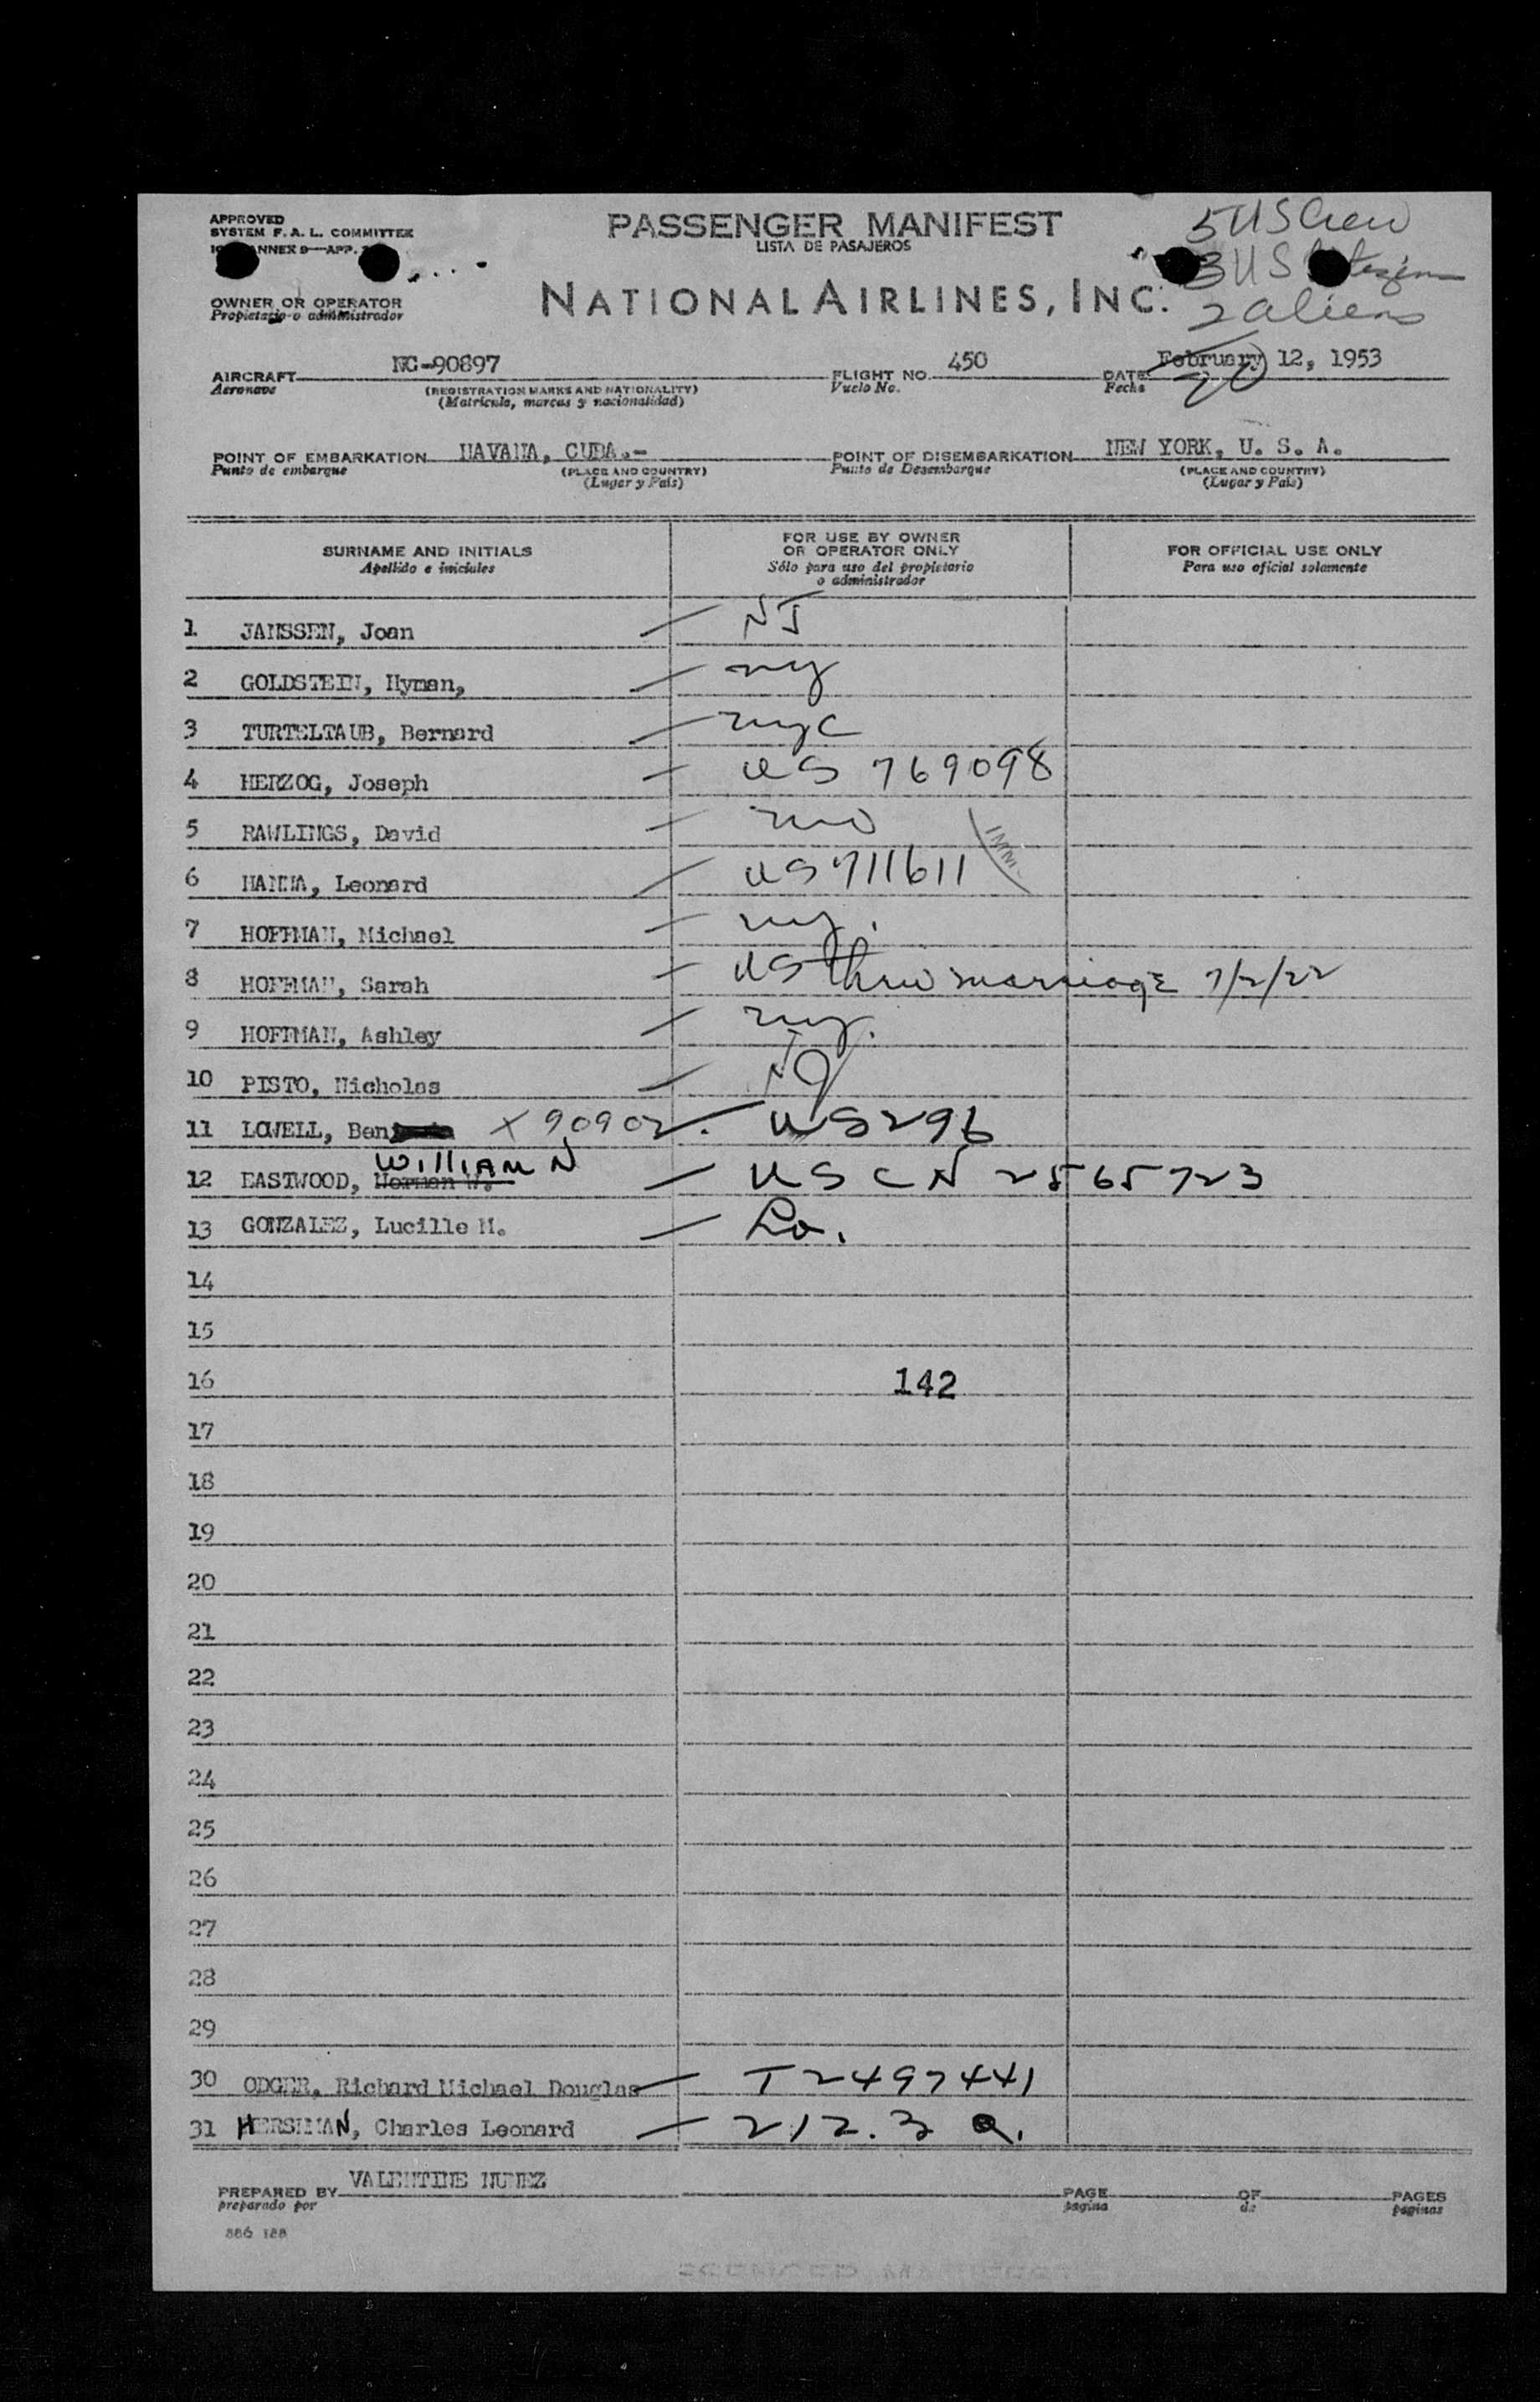 APPROVED
SYSTEM F. A. L. COMMITTEE
ANNEX 9—APP.
PASSENGER MANIFEST
LISTA DE PASAJEROS
5 US Crew
3 US
2 aliens
NATIONAL AIRLINES, INC.
OWNER OR OPERATOR
Propietario o administrador
AIRCRAFT NC-90897 FLIGHT NO. 450 DATE February 12, 1953
Aeronave (REGISTRATION MARKS AND NATIONALITY) Vuelo No. Fecha
(Matrícula, marcas y nacionalidad)
POINT OF EMBARKATION HAVANA, CUBA.- POINT OF DISEMBARKATION NEW YORK, U. S. A.
Punto de embarque (PLACE AND COUNTRY) Punto de Desembarque (PLACE AND COUNTRY)
(Lugar y País) (Lugar y País)
SURNAME AND INITIALS
Apellido e iniciales
FOR USE BY OWNER
OR OPERATOR ONLY
Sólo para uso del propietario
o administrador
FOR OFFICIAL USE ONLY
Para uso oficial solamente
1 JANSSEN, Joan — NJ
2 GOLDSTEIN, Hyman, — ny
3 TURTELTAUB, Bernard — nyc
4 HERZOG, Joseph — US 769098
5 RAWLINGS, David — mo
6 HANNA, Leonard — US 711611 IMM
7 HOFFMAN, Michael — ny.
8 HOFFMAN, Sarah — US thru marriage 7/2/22
9 HOFFMAN, Ashley — ny.
10 PISTO, Nicholas — NY
11 LOWELL, Ben X 90902. — US296
WILLIAM N
12 EASTWOOD, Norman W. — US CN 2565723
13 GONZALEZ, Lucille M. — La.
14
15
16 142
17
18
19
20
21
22
23
24
25
26
27
28
29
30 ODGER, Richard Michael Douglas — T2497441
31 HERSHMAN, Charles Leonard — 212.3 a.
PREPARED BY VALENTINE NUNEZ PAGE OF PAGES
preparado por página de páginas
886 188